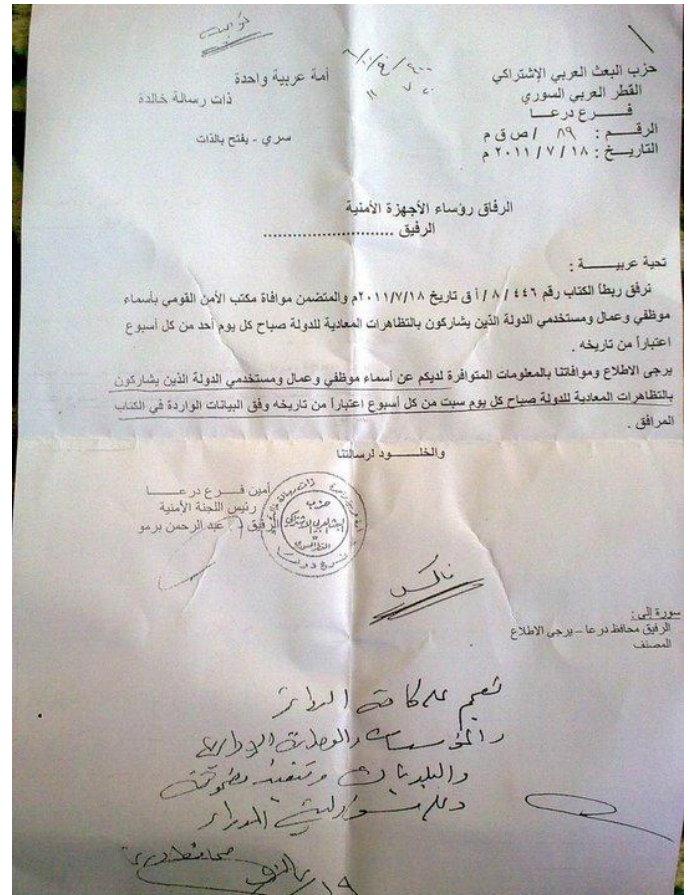 حزب البعث العربي الإشتراكي
القطر العربي السوري
فـــرع درعـــا
الرقـــم : ٨٩ / ص ق م
التاريـــخ : ٢٠١١/٧/١٨ م
أمة عربية واحدة
ذات رسالة خالدة
سري - يفتح بالذات
الرفاق رؤساء الأجهزة الأمنية
الرفيق ............................
تحية عربيـــــة :
نرفق ربطاً الكتاب رقم ٤٤٦ / ٨ / أ ق تاريخ ٢٠١١/٧/١٨م والمتضمن موافاة مكتب الأمن القومي بأسماء
موظفي وعمال ومستخدمي الدولة الذين يشاركون بالتظاهرات المعادية للدولة صباح كل يوم أحد من كل أسبوع
اعتباراً من تاريخه .
يرجى الاطلاع وموافاتنا بالمعلومات المتوافرة لديكم عن أسماء موظفي وعمال ومستخدمي الدولة الذين يشاركون
بالتظاهرات المعادية للدولة صباح كل يوم سبت من كل أسبوع اعتباراً من تاريخه وفق البيانات الواردة في الكتاب
المرافق .
والخلـــــود لرسالتنا
أمين فـــرع درعـــا
رئيس اللجنة الأمنية
الرفيق د. عبد الرحمن برمو
حزب
البعث العربي الاشتراكي
القطر السوري
فاكس
صورة إلى :
الرفيق محافظ درعا – يرجى الاطلاع
المصنف
تعمم على كافة الدوائر
والمؤسسات والوحدات الإدارية
والبلديات وتنفيذ مضمونه
وعلى مسؤولية المدراء
محافظ درعا